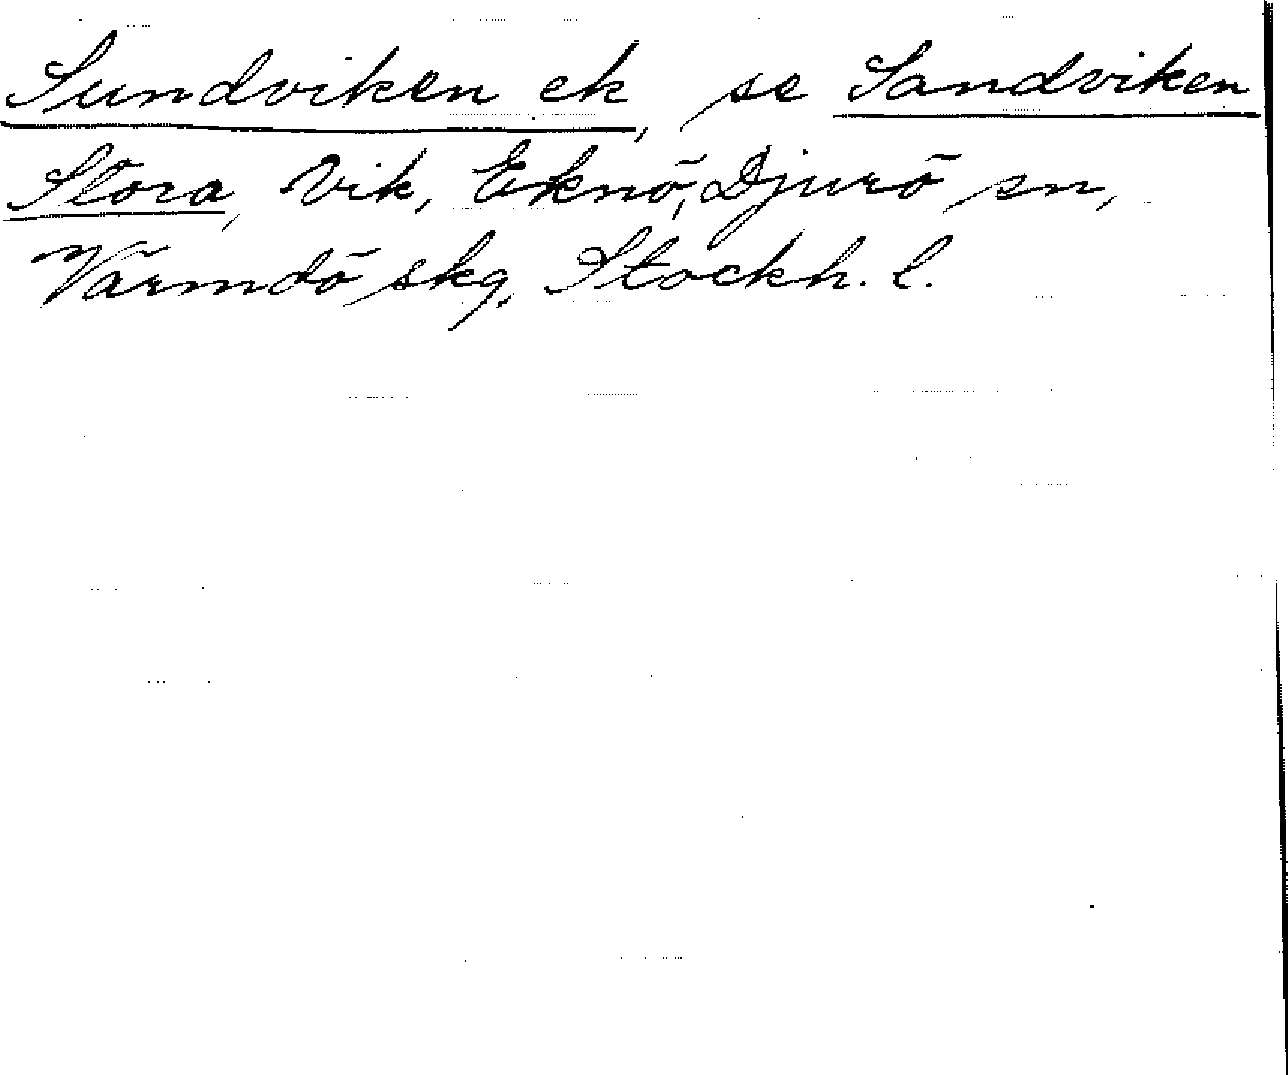 Sundviken ek, se Sandviken
Stora, Vik, Eknö, Djurö sn,
Värmdö skg, Stockh. l.